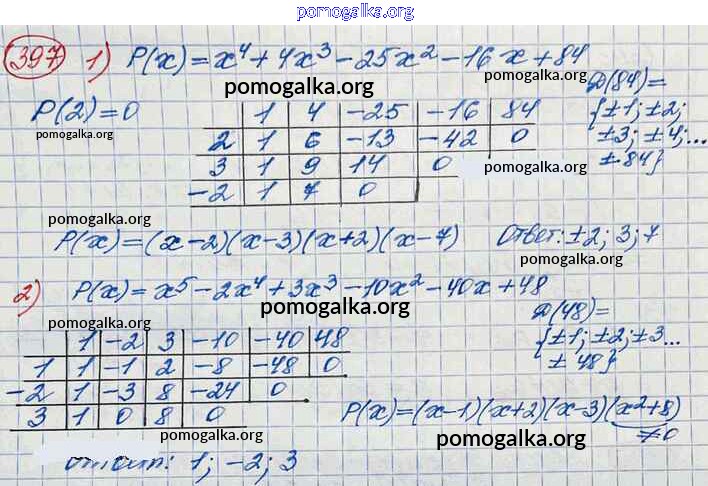 pomogalka.org
397 1) P(x) = x⁴ + 4x³ - 25x² - 16x + 84
pomogalka.org
pomogalka.org
P(2) = 0
pomogalka.org
1 4 -25 -16 84
2 1 6 -13 -42 0
3 1 9 14 0
-2 1 7 0
D(84) =
{±1; ±2;
±3; ±4; ...
± 84}
pomogalka.org
pomogalka.org
P(x) = (x-2)(x-3)(x+2)(x-7)
Ответ: ±2; 3; 7
pomogalka.org
pomogalka.org
2) P(x) = x⁵ - 2x⁴ + 3x³ - 10x² - 40x + 48
pomogalka.org
D(48) =
{±1; ±2; ±3...
± 48}
1 -2 3 -10 -40 48
1 1 -1 2 -8 -48 0
-2 1 -3 8 -24 0
3 1 0 8 0
P(x) = (x-1)(x+2)(x-3)(x²+8)
≠0
pomogalka.org
pomogalka.org
ответ: 1; -2; 3